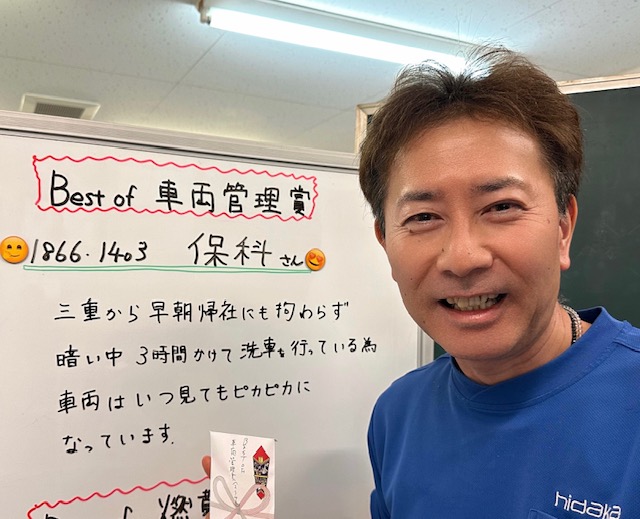 Best of 車両管理賞
1866.1403 保科さん
三重から早朝帰社にも拘わらず
暗い中 3時間かけて洗車も行っている為
車両はいつ見てもピカピカに
なっています.
Best of 燃費
hidaka